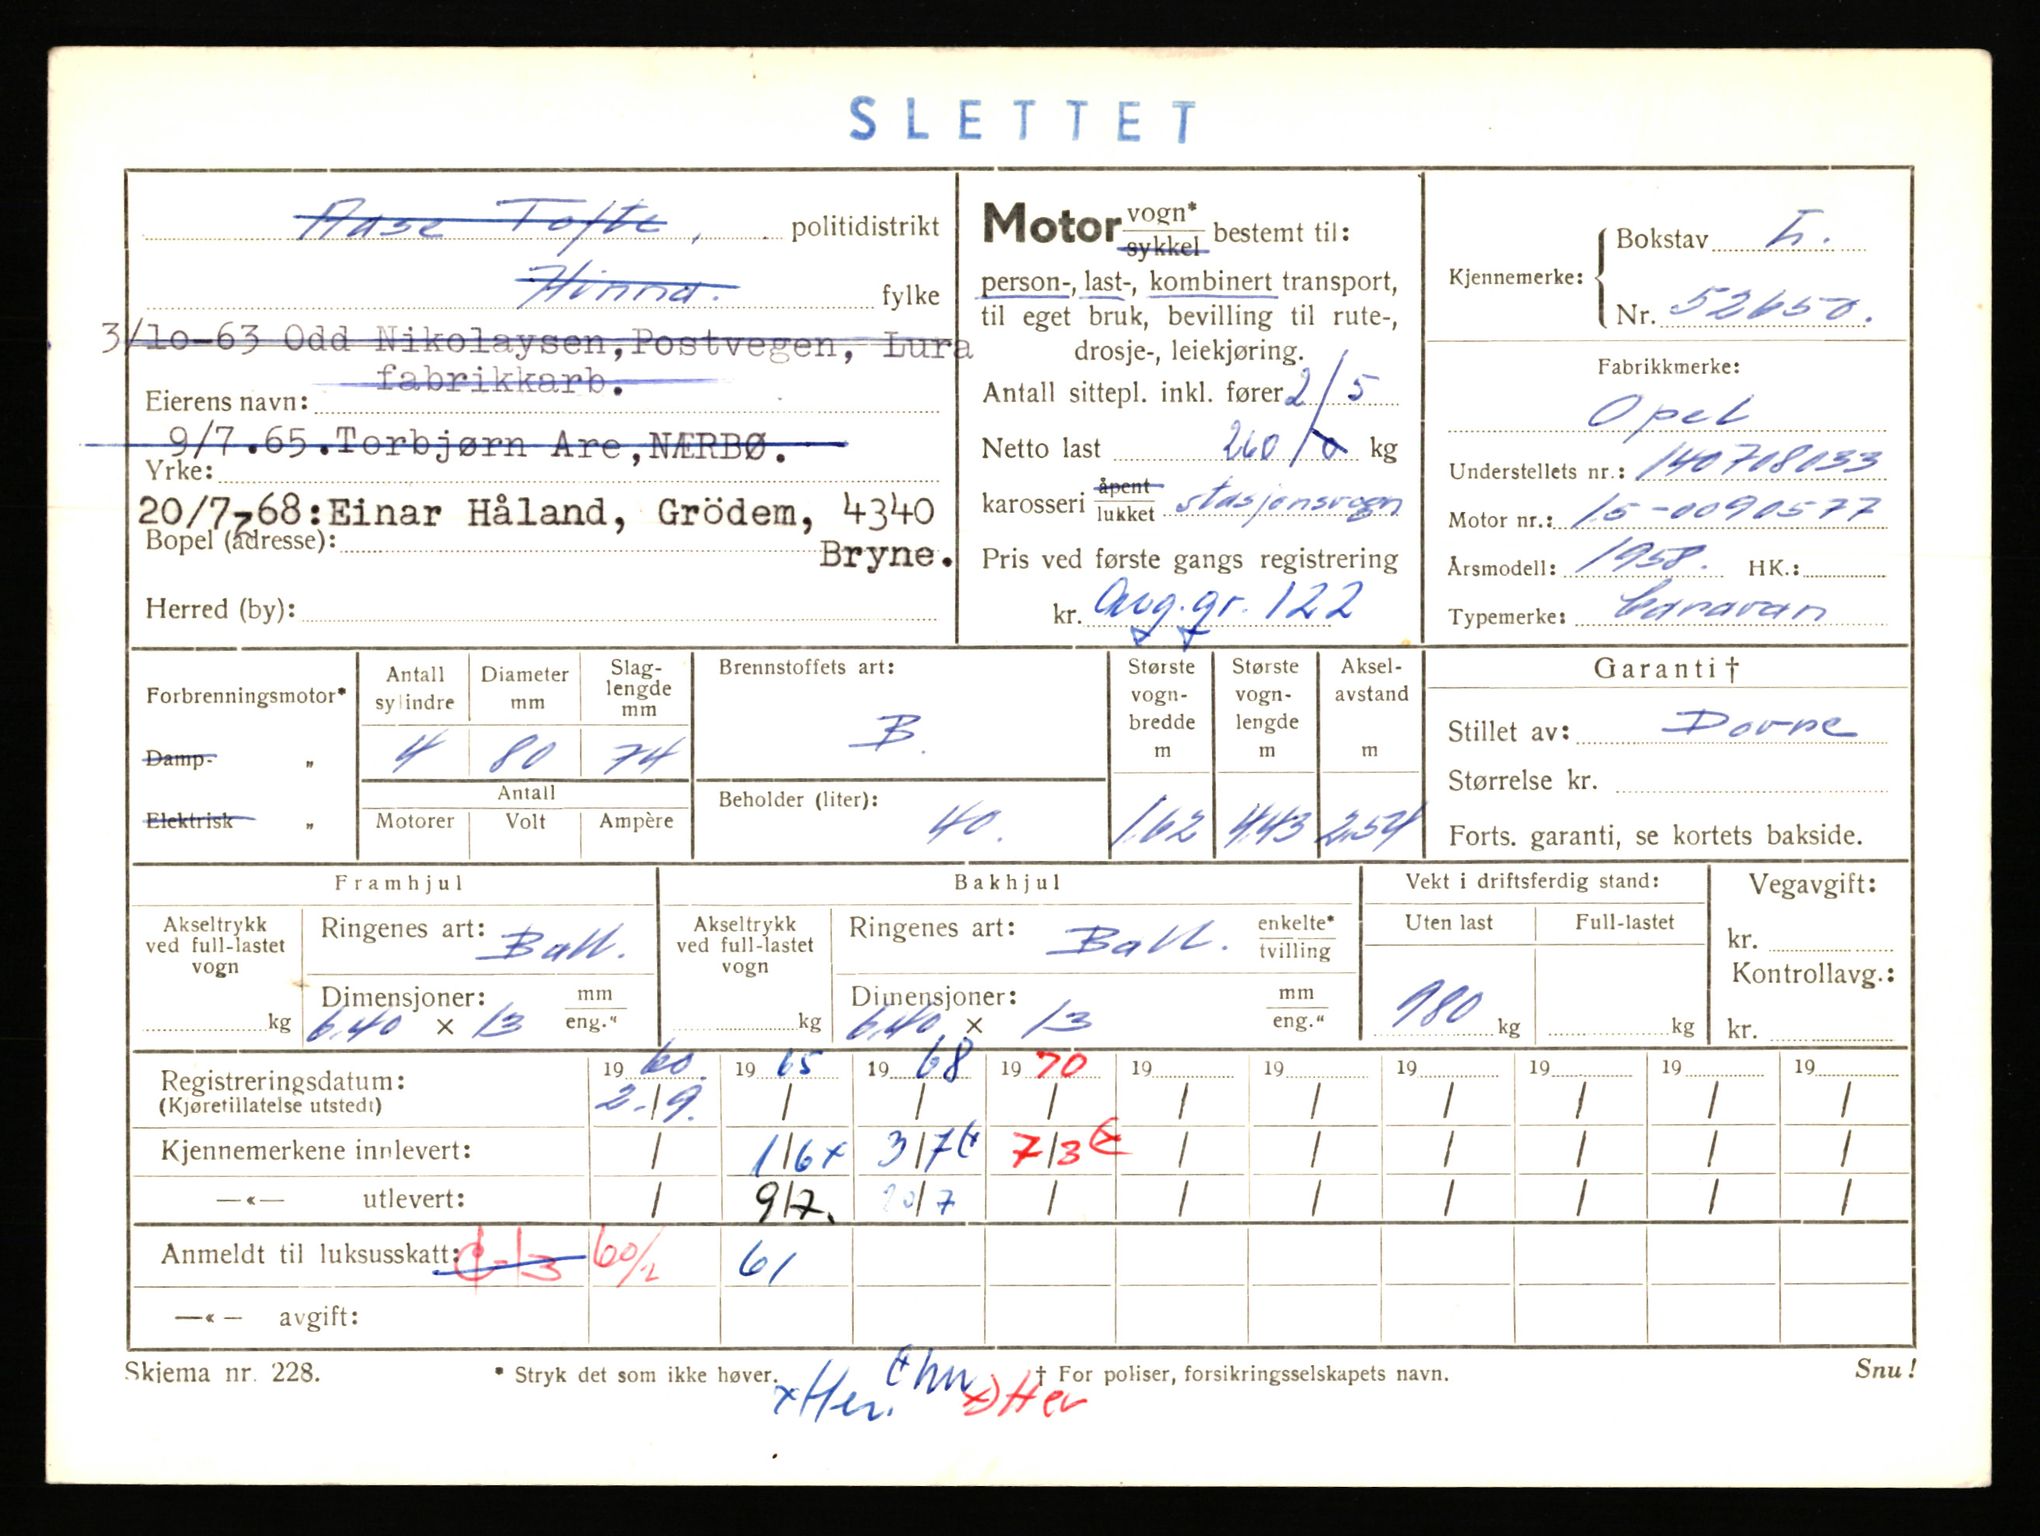 SLETTET
Aase Tofte, politidistrikt
Hinna. fylke
3/10-63 Odd Nikolaysen, Postvegen, Lura
fabrikkarb.
Eierens navn:
9/7.65.Torbjørn Are, NÆRBØ.
Yrke:
20/7-68: Einar Håland, Grödem, 4340
Bopel (adresse):
Bryne.
Herred (by):
Motor vogn* sykkel bestemt til:
person-, last-, kombinert transport,
til eget bruk, bevilling til rute-,
drosje-, leiekjøring.
Antall sittepl. inkl. fører 2/5
Netto last 260/0 kg
karosseri åpent lukket stasjonsvogn
Pris ved første gangs registrering
kr. Avg.gr. 122
Kjennemerke: Bokstav L.
Nr. 52650.
Fabrikkmerke:
Opel
Understellets nr.: 140708033
Motor nr.: 15-0090577
Årsmodell: 1958. HK.:
Typemerke: Caravan
Forbrenningsmotor*
Damp- „
Elektrisk „
Antall sylindre Diameter mm Slaglengde mm
4 80 74
Antall
Motorer Volt Ampère
Brennstoffets art:
B.
Beholder (liter):
40.
Største vognbredde m Største vognlengde m Akselavstand m
1.62 4.43 2.54
Garanti †
Stillet av: Dovre
Størrelse kr.
Forts. garanti, se kortets bakside.
Framhjul
Akseltrykk ved full-lastet vogn
kg
Ringenes art: Ball.
Dimensjoner: mm
6.40 x 13 eng."
Bakhjul
Akseltrykk ved full-lastet vogn
kg
Ringenes art: Ball. enkelte* tvilling
Dimensjoner: mm
6.40 x 13 eng."
Vekt i driftsferdig stand:
Uten last Full-lastet
980 kg kg
Vegavgift:
kr.
Kontrollavg.:
kr.
19 60. 19 65 19 68 19 70 19 19 19 19 19 19
Registreringsdatum:
(Kjøretillatelse utstedt) 2./9. / / / / / / / / /
Kjennemerkene innlevert: / 1/6x 3/7 7/3 / / / / / /
—«— utlevert: / 9/7. 20/7 / / / / / / /
Anmeldt til luksusskatt: 60/2 61
—«— avgift:
Skjema nr. 228.
* Stryk det som ikke høver.
† For poliser, forsikringsselskapets navn.
Snu!
x Her. x) Her